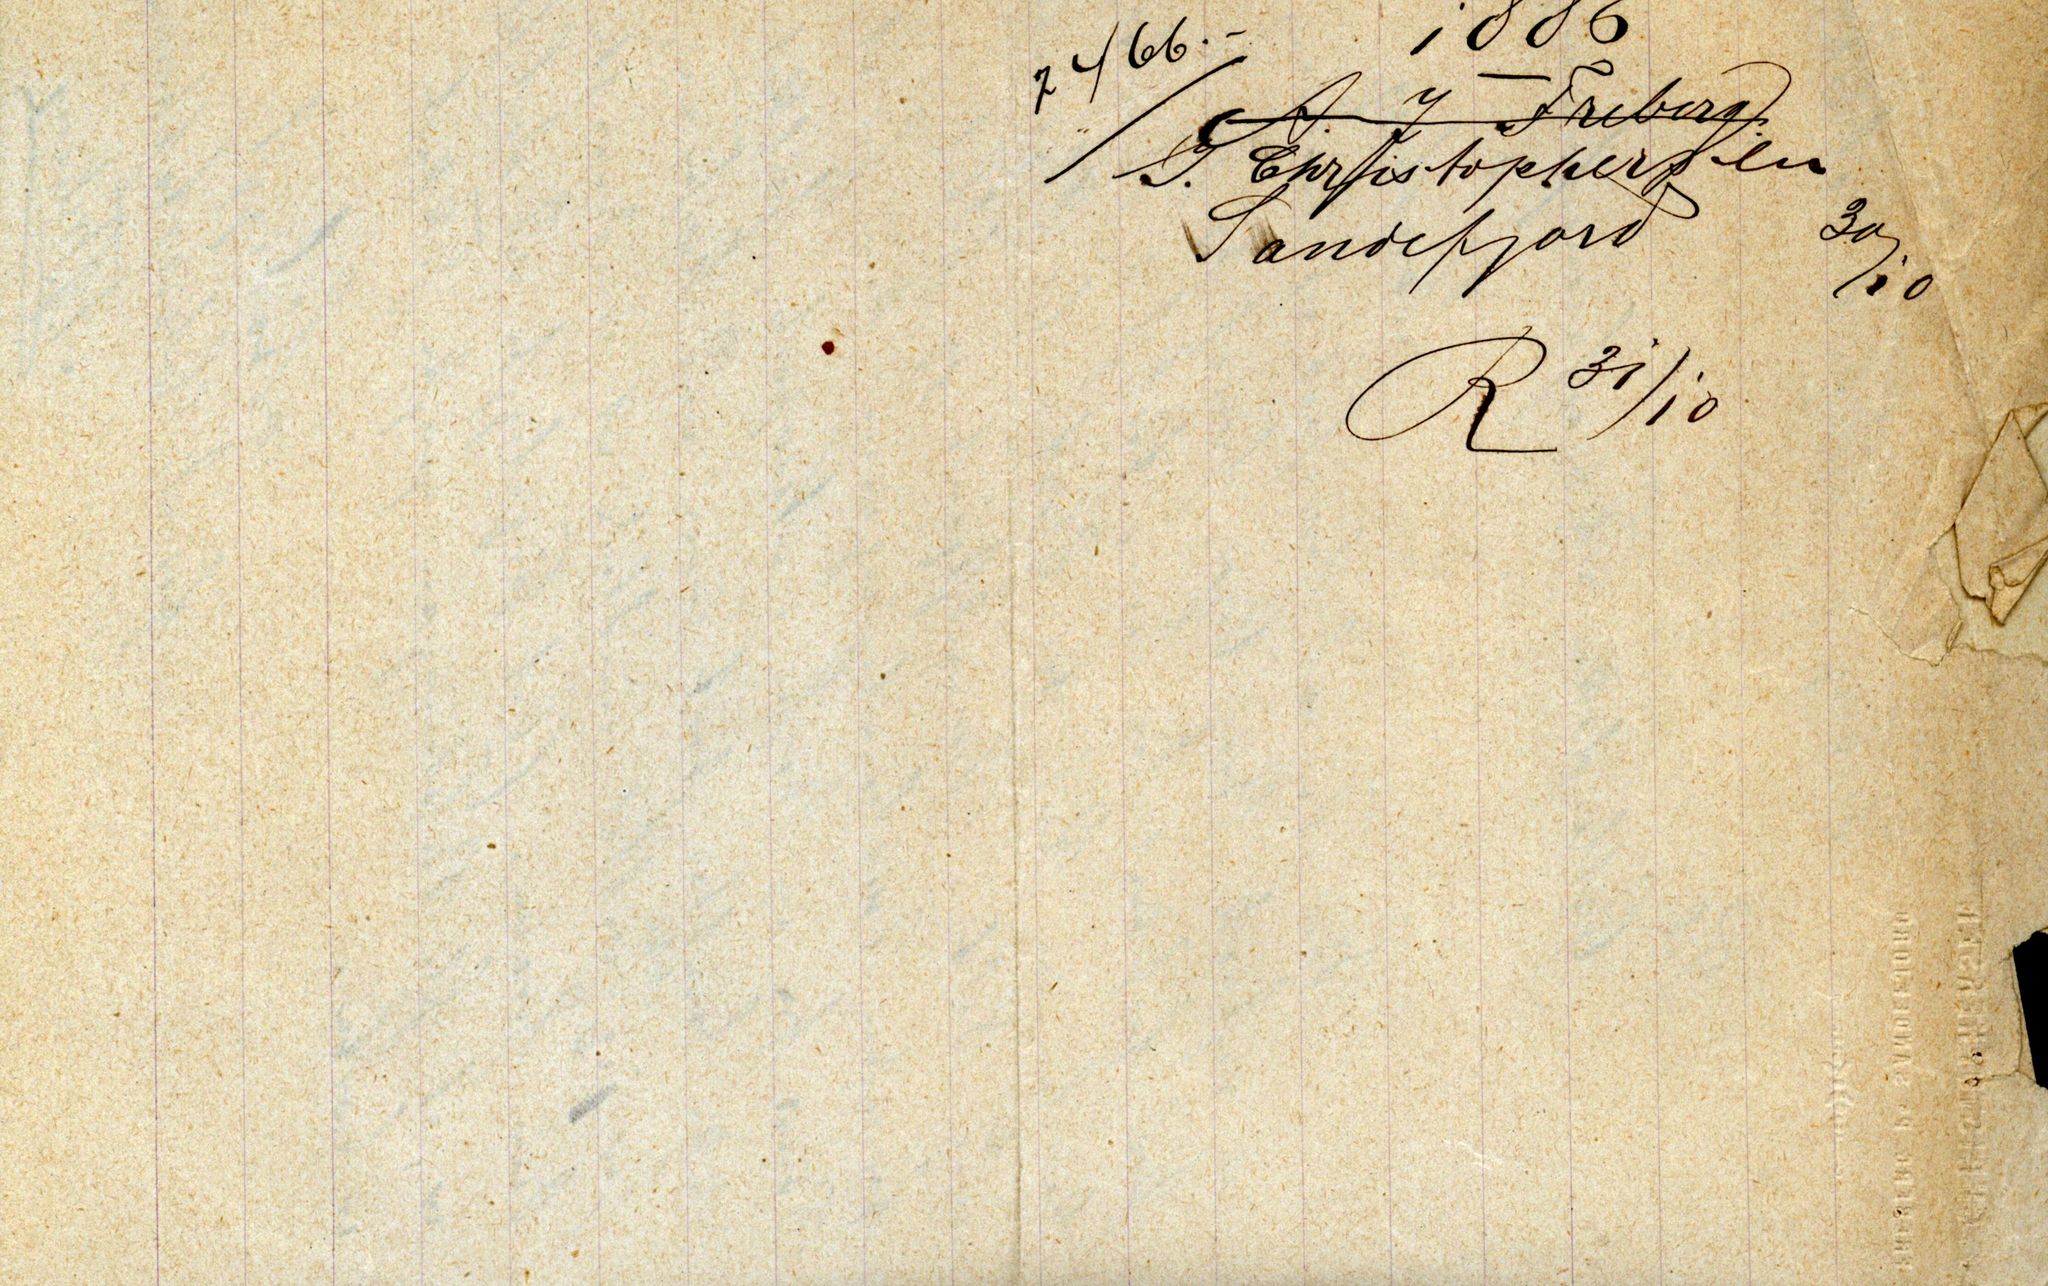 1886
7466.-
A. J. Freberg
G. Christophersen
Sandefjord
30/10
R 31/10